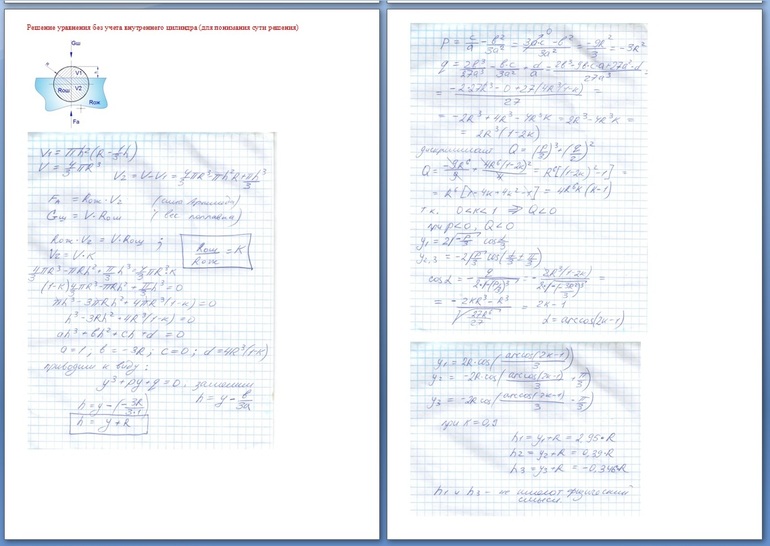 Решение уравнения без учета внутреннего цилиндра (для понимания сути решения)
Gш
V1
Rош
V2
Rож
Fа
V₁ = πh²(R - 1/3 h)
V = 4/3 πR³
V₂ = V - V₁ = 4/3 πR³ - πh²R + πh³/3
Fа = Rож · V₂ (сила Архимеда)
Gш = V · Rош (вес поплавка)
Rож · V₂ = V · Rош ;
Rош/Rож = K
V₂ = V · K
4/3 πR³ - πRh² + π/3 h³ = 4/3 πR³K
(1-K) 4/3 πR³ - πRh² + π/3 h³ = 0
πh³ - 3πRh² + 4πR³(1-K) = 0
h³ - 3Rh² + 4R³(1-K) = 0
ah³ + bh² + ch + d = 0
a = 1, b = -3R ; c = 0 ; d = 4R³(1-K)
приводим к виду:
y³ + py + q = 0, заменим
h = y - b/3a
h = y - (-3R/3·1)
h = y + R
p = c/a - b²/3a² = (3a·c - b²)/3a² = -9R²/3 = -3R²
q = 2b³/27a³ - b·c/3a² + d/a = (2b³ - 9b·c·a + 27a²·d)/27a³ =
= (-2·27R³ - 0 + 27(4R³(1-K)))/27 =
= -2R³ + 4R³ - 4R³K = 2R³ - 4R³K =
= 2R³(1-2K)
Q = (p/3)³ + (q/2)²
= R⁶[1 - 4K + 4K² - 1] = 4R⁶K(K-1)
т.к. 0<K<1 ⇒ Q<0
при p<0, Q<0
y₁ = 2√(-p/3) cos α/3
y₂,₃ = -2√(-p/3) cos(α/3 ± π/3)
= 2K-1
α = arccos(2K-1)
y₁ = 2R·cos(arccos(2K-1)/3)
y₂ = -2R·cos(arccos(2K-1)/3 + π/3)
y₃ = -2R·cos(arccos(2K-1)/3 - π/3)
при K = 0,9
h₁ = y₁+R = 2,95·R
h₂ = y₂+R = 0,39·R
h₃ = y₃+R = -0,346·R
h₁ и h₃ - не имеют физический
смысл.